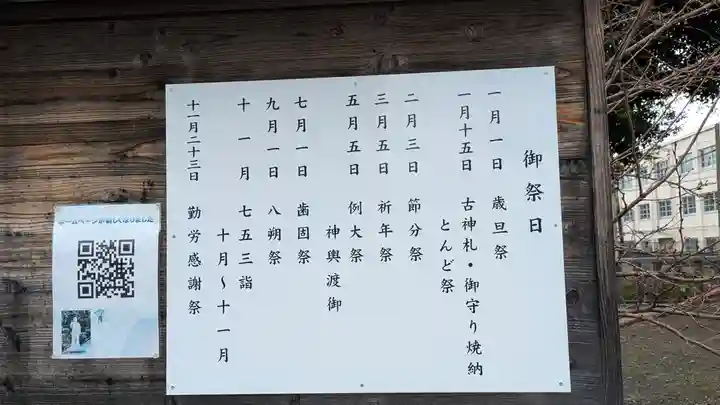 御祭日
一月一日 歳旦祭
一月十五日 古神札・御守り焼納
とんど祭
二月三日 節分祭
三月五日 祈年祭
五月五日 例大祭
神輿渡御
七月一日 歯固祭
九月一日 八朔祭
十一月 七五三詣
十月～十一月
十一月二十三日 勤労感謝祭
ホームページが新しくなりました